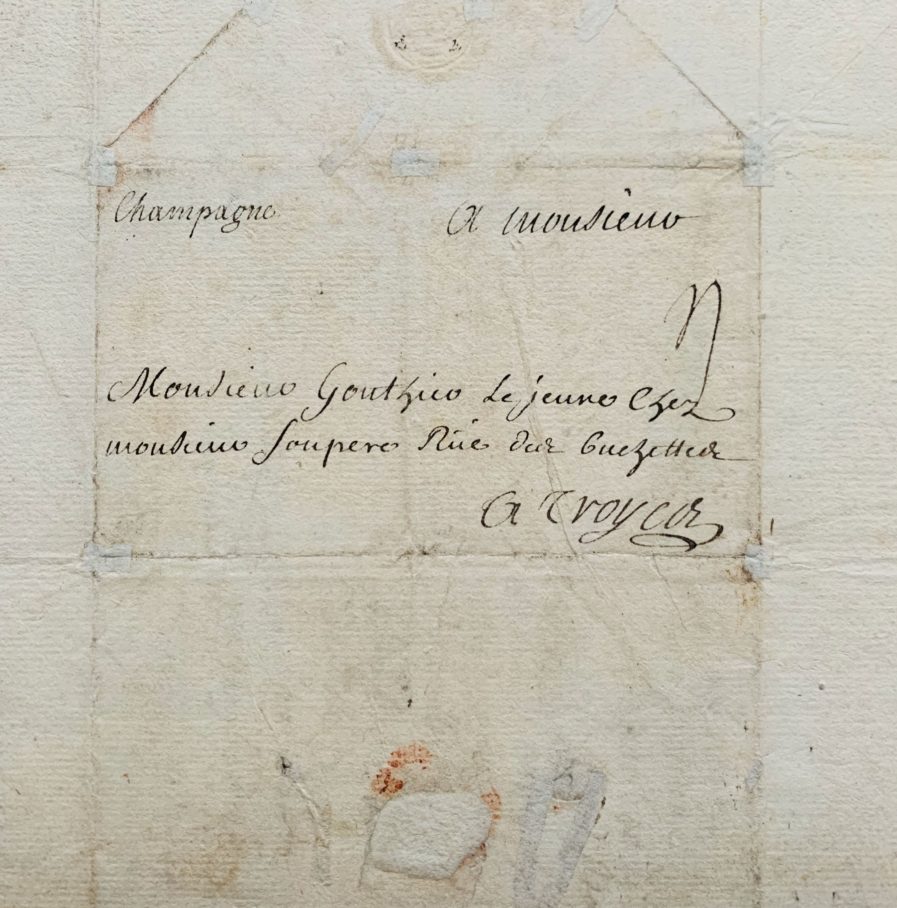 Champagne
A monsieur
Monsieur Gouthier Le jeune Chez
monsieur soupere Rüe des buchettes
A Troyes